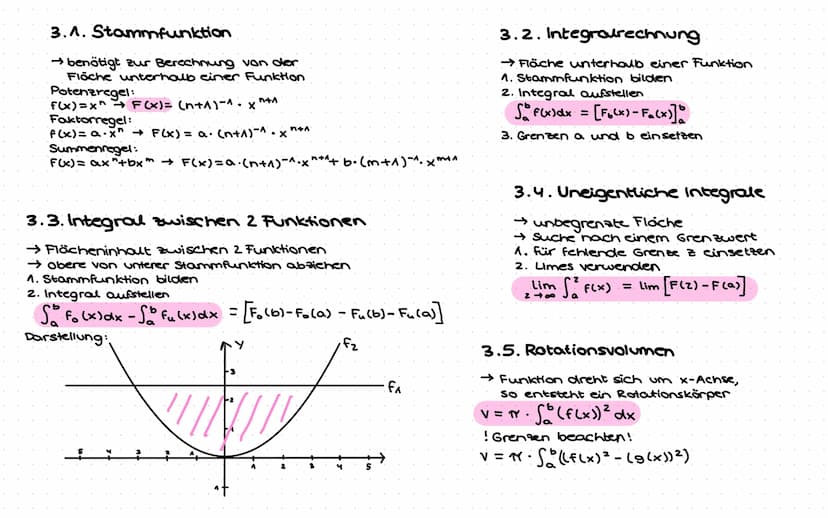 3.1. Stammfunktion
→ benötigt zur Berechnung von der
Fläche unterhalb einer Funktion
Potenzregel:
f(x)=xⁿ → F(x)= (n+1)⁻¹ · xⁿ⁺¹
Faktorregel:
f(x)=a·xⁿ → F(x)=a·(n+1)⁻¹·xⁿ⁺¹
Summenregel:
f(x)= axⁿ+bxᵐ → F(x)=a·(n+1)⁻¹·xⁿ⁺¹+b·(m+1)⁻¹·xᵐ⁺¹
3.2. Integralrechnung
→ Fläche unterhalb einer Funktion
1. Stammfunktion bilden
2. Integral aufstellen
∫ₐᵇ f(x)dx = [F_b(x)-F_a(x)]ₐᵇ
3. Grenzen a und b einsetzen
3.3. Integral zwischen 2 Funktionen
→ Flächeninhalt zwischen 2 Funktionen
→ obere von unterer Stammfunktion abziehen
1. Stammfunktion bilden
2. Integral aufstellen
∫ₐᵇ f₀(x)dx - ∫ₐᵇ fᵤ(x)dx = [F₀(b)-F₀(a) - Fᵤ(b)-Fᵤ(a)]
Darstellung:
y
f₂
3
f₁
2
1
5 4 3 2 1
1 2 3 4 5
1
3.4. Uneigentliche Integrale
→ unbegrenzte Fläche
→ Suche nach einem Grenzwert
1. für fehlende Grenze z einsetzen
2. Limes verwenden
lim z→∞ ∫ₐᶻ f(x) = lim [F(z)-F(a)]
3.5. Rotationsvolumen
→ Funktion dreht sich um x-Achse,
so entsteht ein Rotationskörper
V = π · ∫ₐᵇ (f(x))² dx
! Grenzen beachten!
V = π · ∫ₐᵇ ((f(x)² - (g(x))²)